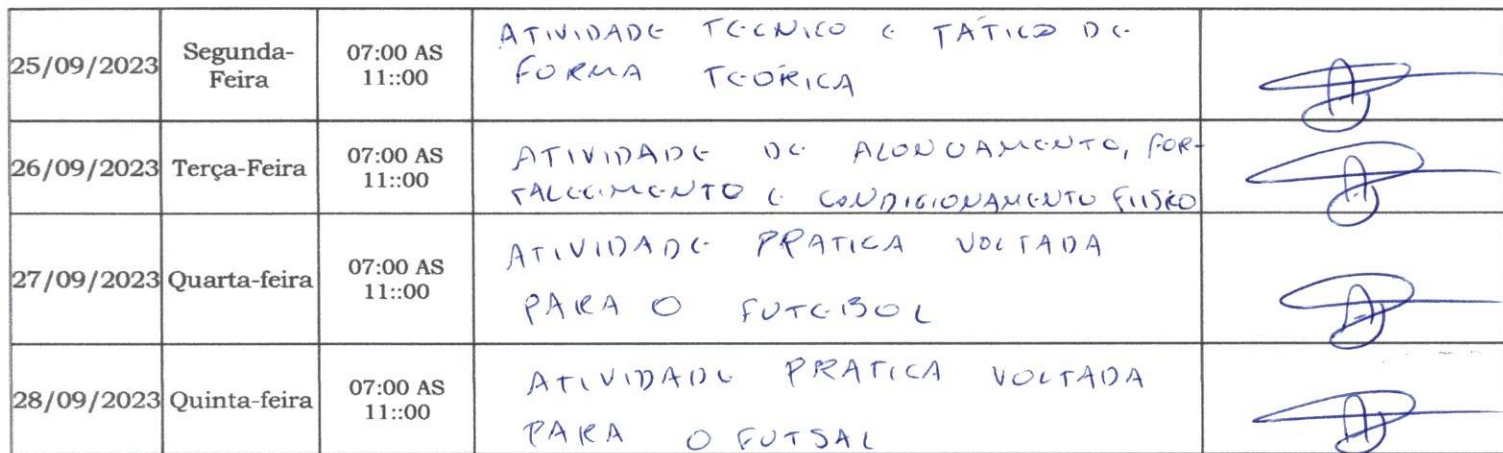 25/09/2023 Segunda-Feira 07:00 AS 11::00 ATIVIDADE TECNICO E TÁTICO DE
FORMA TEÓRICA
26/09/2023 Terça-Feira 07:00 AS 11::00 ATIVIDADE DE ALONGAMENTO, FOR-
TALECIMENTO E CONDICIONAMENTO FIISCO
27/09/2023 Quarta-feira 07:00 AS 11::00 ATIVIDADE PRATICA VOLTADA
PARA O FUTEBOL
28/09/2023 Quinta-feira 07:00 AS 11::00 ATIVIDADE PRATICA VOLTADA
PARA O FUTSAL